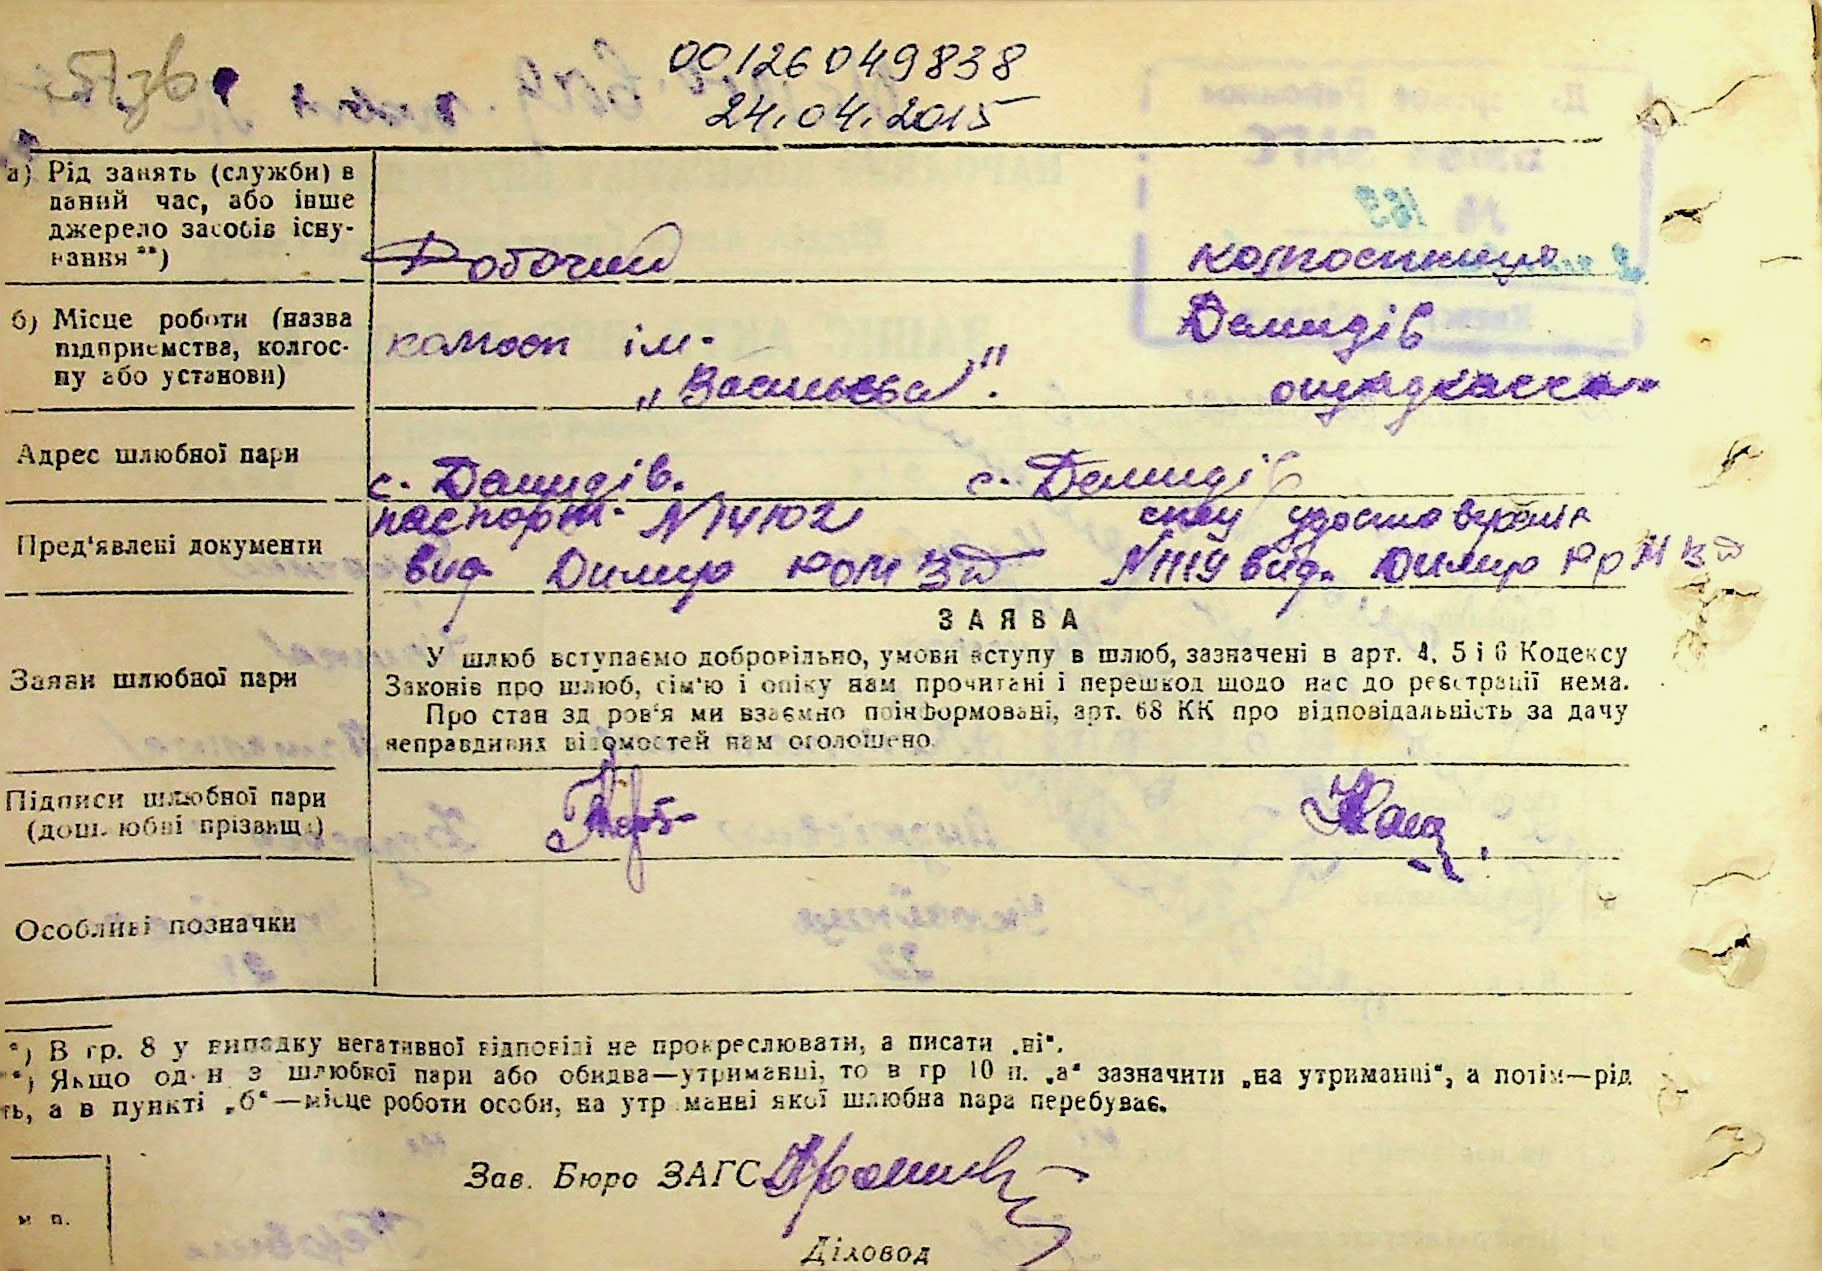 00126049838
24.04.2015
а) Рід занять (служби) в
даний час, або інше
джерело засобів існу-
вання **)
Робочий
б) Місце роботи (назва
підприємства, колгос-
пу або установи)
колгосп ім.
Демидів
"
ощадкасса
Адрес шлюбної пари
с. Демидів. с. Демидів
Пред'явлені документи
паспорт N14102
вид. Димер N1119 вид. Димер
ЗАЯВА
Заяви шлюбної пари
У шлюб вступаємо добровільно, умови вступу в шлюб, зазначені в арт. 4, 5 і 6 Кодексу
Законів про шлюб, сім'ю і опіку нам прочитані і перешкод щодо нас до реєстрації нема.
Про стан здоров'я ми взаємно поінформовані, арт. 68 КК про відповідальність за дачу
неправдивих відомостей нам оголошено.
Підписи шлюбної пари
(дошлюбні прізвища)
Особливі позначки
*) В гр. 8 у випадку негативної відповіді не прокреслювати, а писати „ні“.
*) Якщо один з шлюбної пари або обидва—утриманці, то в гр 10 п. „а“ зазначити „на утриманні“, а потім—рід
ть, а в пункті „б“—місце роботи особи, на утриманні якої шлюбна пара перебуває.
Зав. Бюро ЗАГС
м п.
Діловод